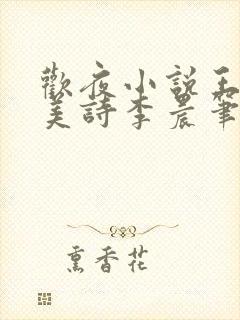 歡夜小說王
美詩李晨筆
熏香花